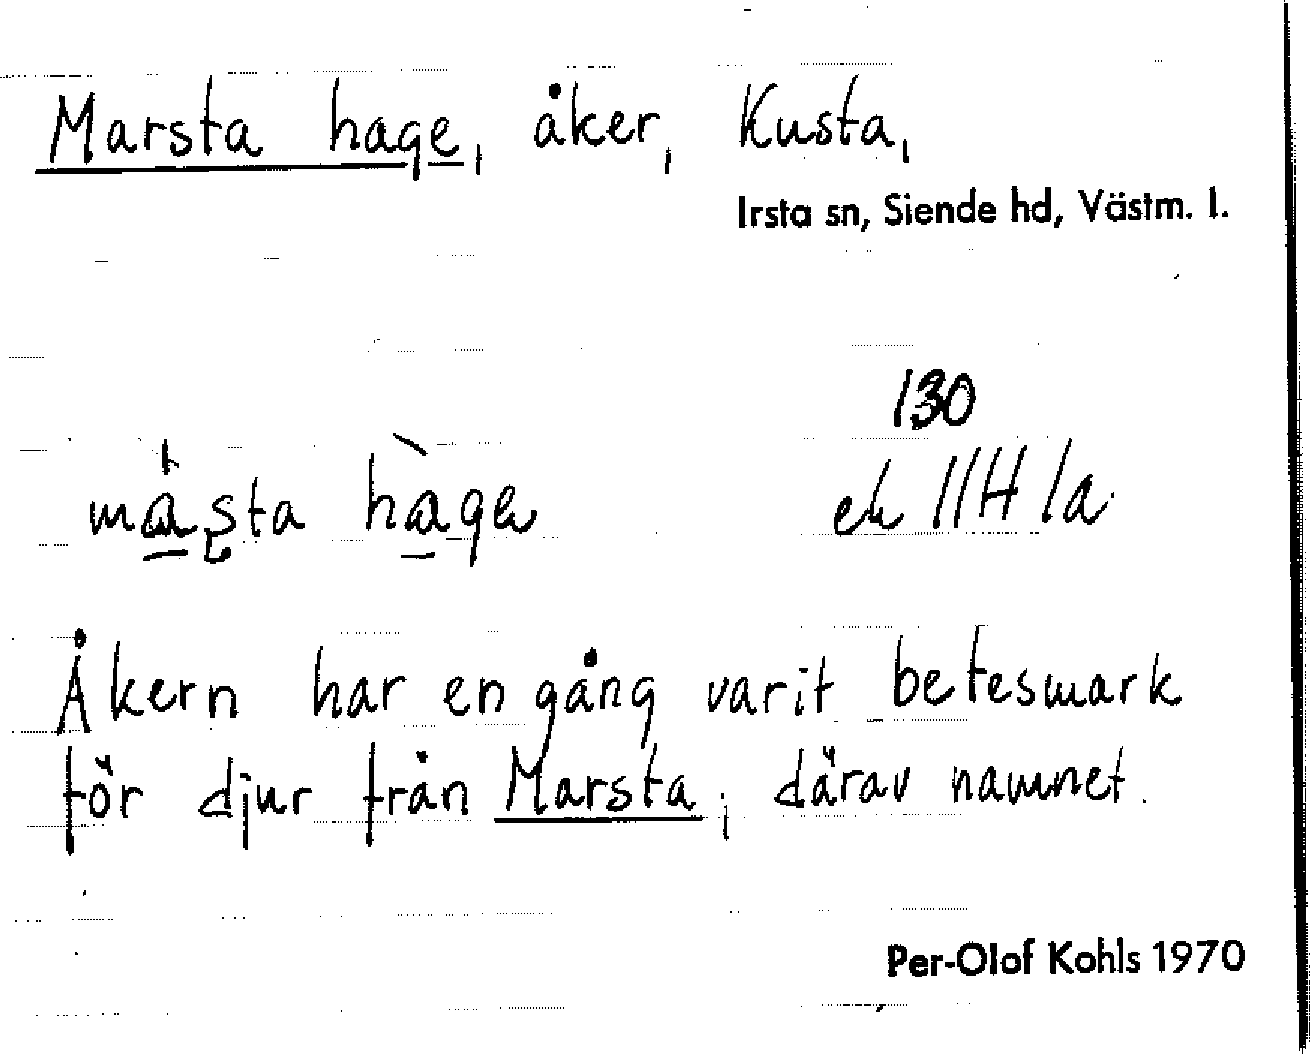 Marsta hage, åker, Kusta,
Irsta sn, Siende hd, Västm. l.
130
masta hage
ek 11H 1a
Åkern har en gång varit betesmark
för djur från Marsta, därav namnet.
Per-Olof Kohls 1970